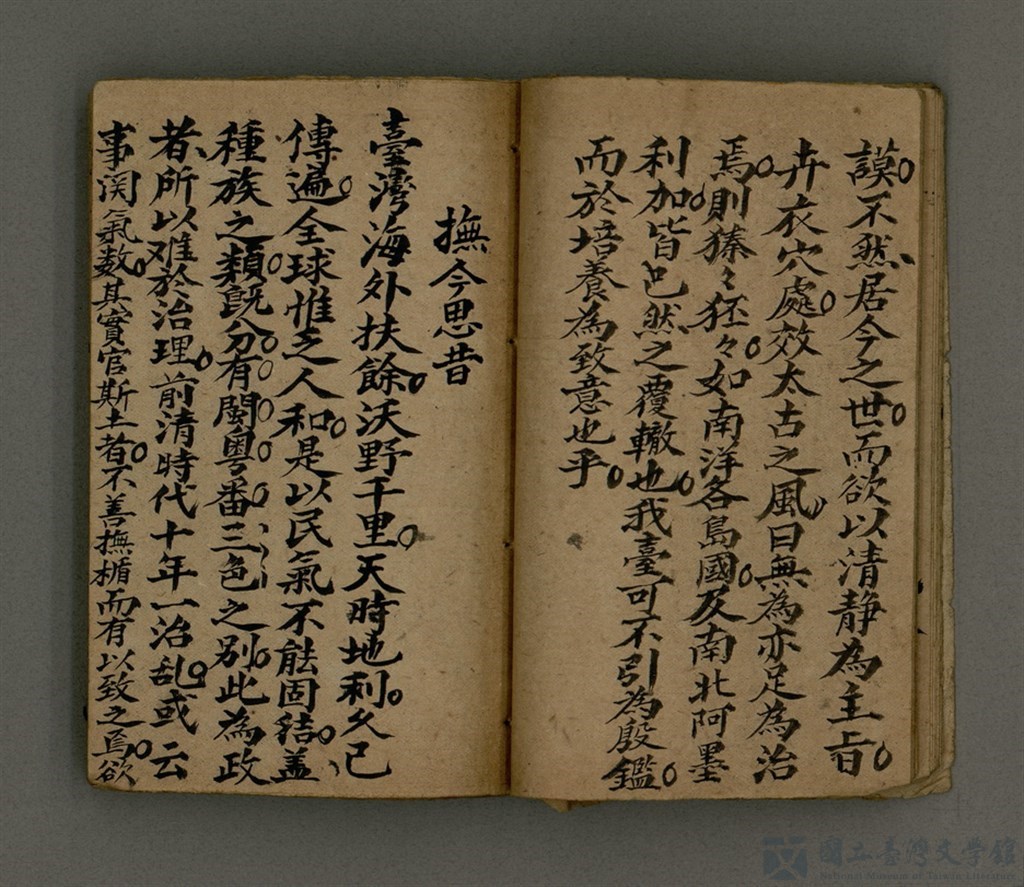 謨。不然居今之世。而欲以清靜為主旨。
卉衣穴處。效太古之風。曰無為亦足為治
焉。則獉々狉々。如南洋各島國。及南北阿墨
利加。皆已然之覆轍也。我臺可不引為殷鑑。
而於培養為致意也乎。
撫今思昔
臺灣海外扶餘。沃野千里。天時地利。久已
傳遍。全球惟乏人和。是以民氣不能固結。蓋
種族之類。既分。有閩。粵。番。三色之別。此為政
者、所以难於治理。前清時代十年一治乱。或云
事関氣数。其實官斯土者。不善撫楯而有以致之焉。欲
國立臺灣文學館
National Museum of Taiwan Literature